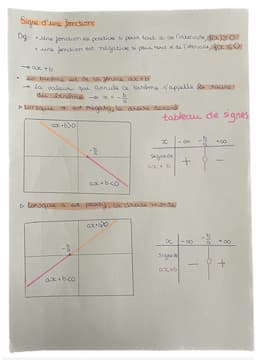 Signe d'une fonction
Dg: • Une fonction est positive si pour tout x de l'intervalle, f(x) ≥ 0
• une fonction est négative si pour tout x de l'intervalle, f(x) ≤ 0
→ ax + b
• Le binôme est de la forme ax + b
→ La valeur qui annule ce binôme s'appelle la racine
du binôme → x = - b/a
▷ Lorsque a est négatif, la droite descend
tableau de signes
ax + b > 0
- b/a
ax + b < 0
x | -∞ - b/a +∞
Signe de ax + b | + 0 -
▷ Lorsque a est positif, la droite monte
ax + b > 0
- b/a
ax + b < 0
x | -∞ - b/a +∞
Signe de ax + b | - 0 +